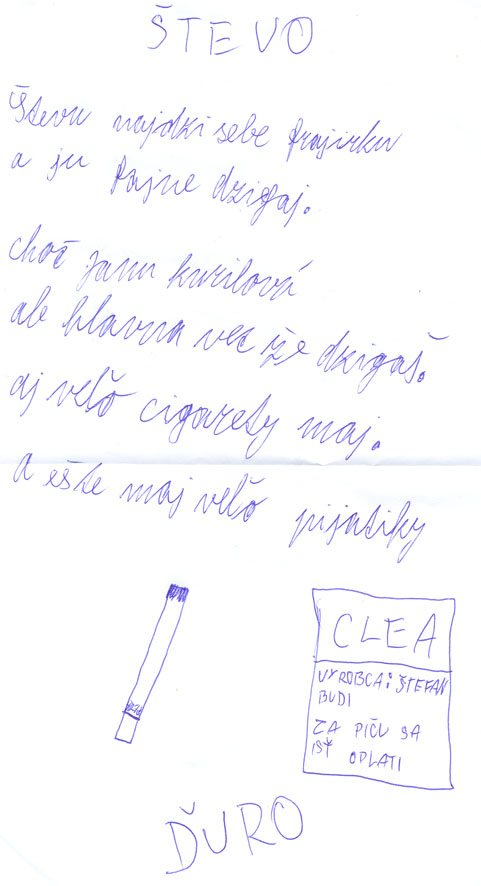 ŠTEVO
Števu najdzi sebe frajirku
a ju fajne dzigaj.
choč Janu kurilovú
ale hlavna vec že dzigaš.
aj velǒ cigarety maj.
a ešte maj velǒ pijatiky
CLEA
VYROBCA: ŠTEFAN
BUDI
ZA PIČU SA
ISŤ OPLATI
ĎURO